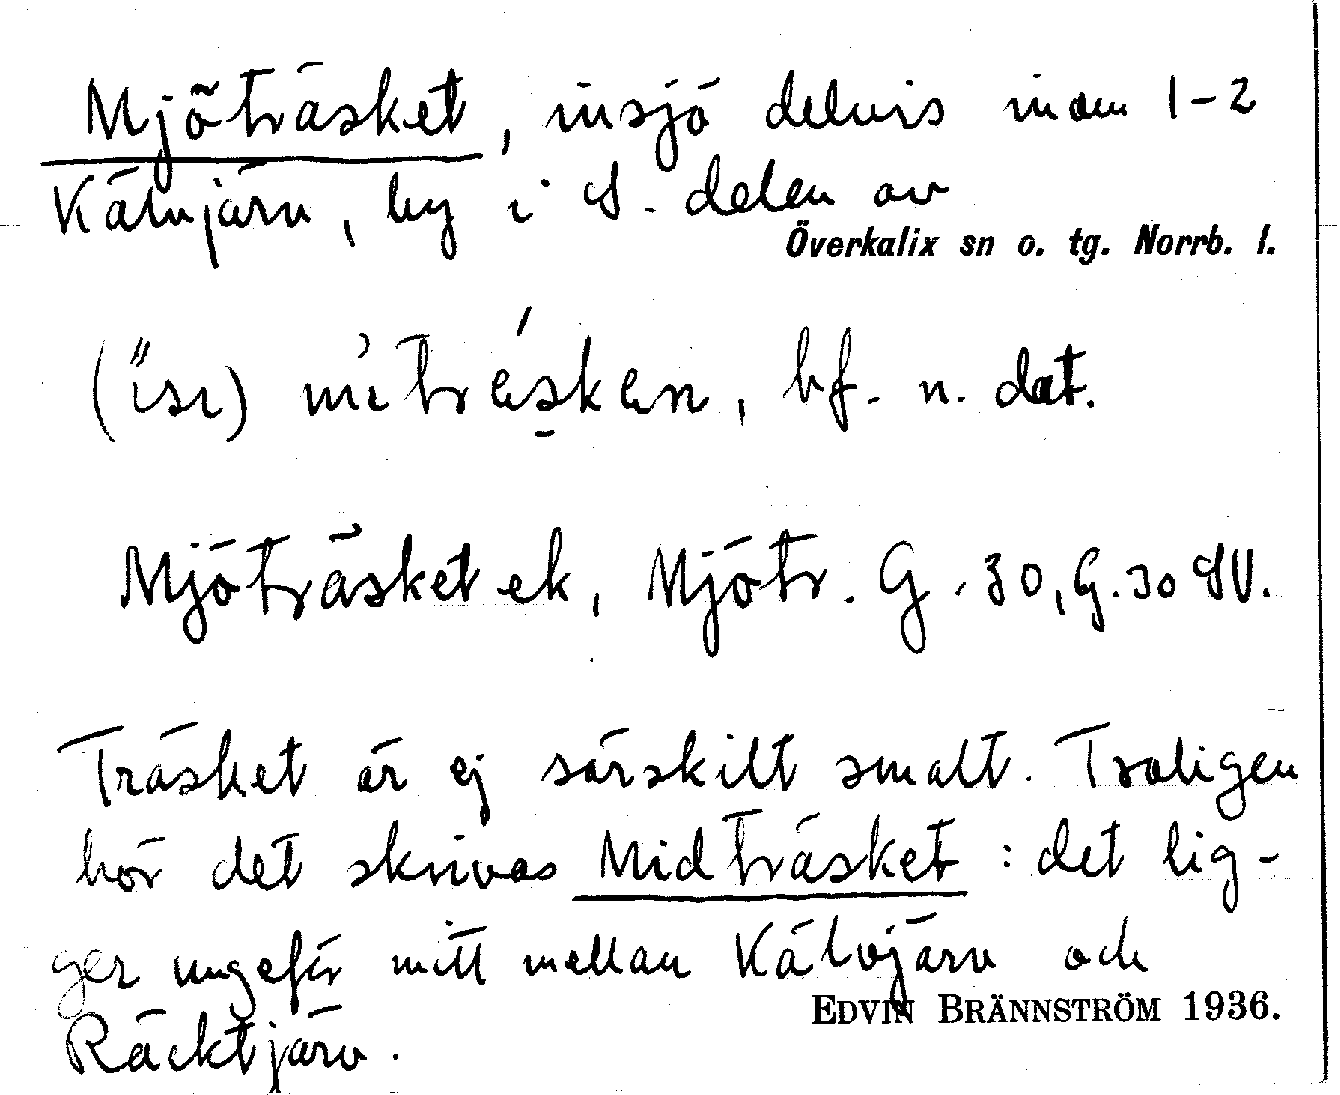 Mjöträsket, insjö delvis inom 1-2
Kälvjärv, by i S. delen av
Överkalix sn o. tg. Norrb. l.
bf. n. dat.
Mjöträsket ek, Mjötr. G. 30, G. 30 SV.
Träsket är ej särskilt smalt. Troligen
bör det skrivas Midträsket: det lig-
ger ungefär mitt mellan Kälvjärv och
Räcktjärv.
EDVIN BRÄNNSTRÖM 1936.